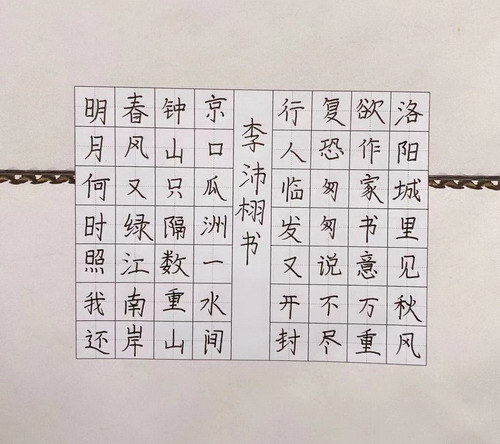 洛阳城里见秋风
欲作家书意万重
复恐匆匆说不尽
行人临发又开封
李沛栩书
京口瓜洲一水间
钟山只隔数重山
春风又绿江南岸
明月何时照我还